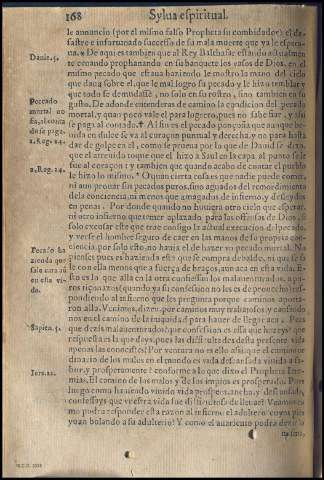 168 Sylua espiritual.
le annuncio (por el mismo falso Propheta su combidador) el de-
sastre e infortunado successo de su mala muerte que ya le espera-
ua. De aqui es tambien que al Rey Balthasar estando actualmen
te cenando prophanando en su banquete los vasos de Dios, en el
mismo peccado que estaua haziendo le mostro la mano del cielo
que
que todo se demudasse, no solo en su rostro, sino tambien en su
gusto. De adonde entenderas de camino la condicion del peccado
mortal, y quan poco vale el para logrero, pues no sabe fiar, y assi
se paga al contado. Al fin es el peccado ponçoña que aunque be-
uida en dulce se va al coraçon puntual y derecha, y no para hasta
dar de golpe en el, como se prueua por lo que de Dauid se dize,
que el arremoto toque que el hizo a Saul en la capa al punto se le
fue al coraçon y tambien que quando acabo de contar el pueblo
le hizo lo mismo. O quan cierta cosa es que nadie puede comer,
ni aun prouar sin pecados puros, sino aguados del remordimiento
de la conciencia, ni menos que amagados de infiernos y desseydos
en penas. Por donde quando no huuiera otro cielo que esperar,
ni otro infierno que temer aplazado para las offensas de Dios, si
solo escusar este que trae consigo la actual execucion del peccado,
y verse el hombre seguro de caer en las manos de su propria con-
ciencia, por solo esto no hauia el de hazer vn pecado mortal. No
pienses pues es hazienda esta que se compra de balde, ni que se sa
le con ella menos que a fuerça de braços, aun aca en esta vida, si-
no es la que alla en la otra confiessan los malauenturados, a pu-
ros riçonazos (quando ya su confession no les es de prouecho) res-
pondiendo al infierno que les pregunta porque caminos aporta-
ron alla. Venimos, dizen, por caminos muy trabajosos y cansando
nos en el camino de la iniquidad para hauer de llegar aca. Pues
que dezis malauenturados? que confession es essa que hazeys? que
respuesta es la que days, pues las difficultades desta presente vida
apenas las conocistes? Por ventura no es ello assi que el camino or
dinario de los malos en el mundo es vada desastrada venida a sa-
bor, y prosperamente? conforme a lo que dixo el Propheta Iere-
mias, El camino de los malos y de los impios es prosperado. Pues
luego como hauiendo viuido vida prospera, ancha, y descansada,
confessays que vuestra vida fue difficultosa de lleuar? Veamos co-
mo podra responder esta razon al infierno el adultero cuyos pies
yuan bolando a su adulterio? Y como el auariento podra dezir lo
mismo,
Danie. 5.
Peccado
mortal no
fia, al conta
do se paga.
1. Reg. 24.
2. Reg. 24.
Pecado ha
zienda que
sale cara aũ
en esta vi-
da.
Sapien. 5.
Iere. 12.